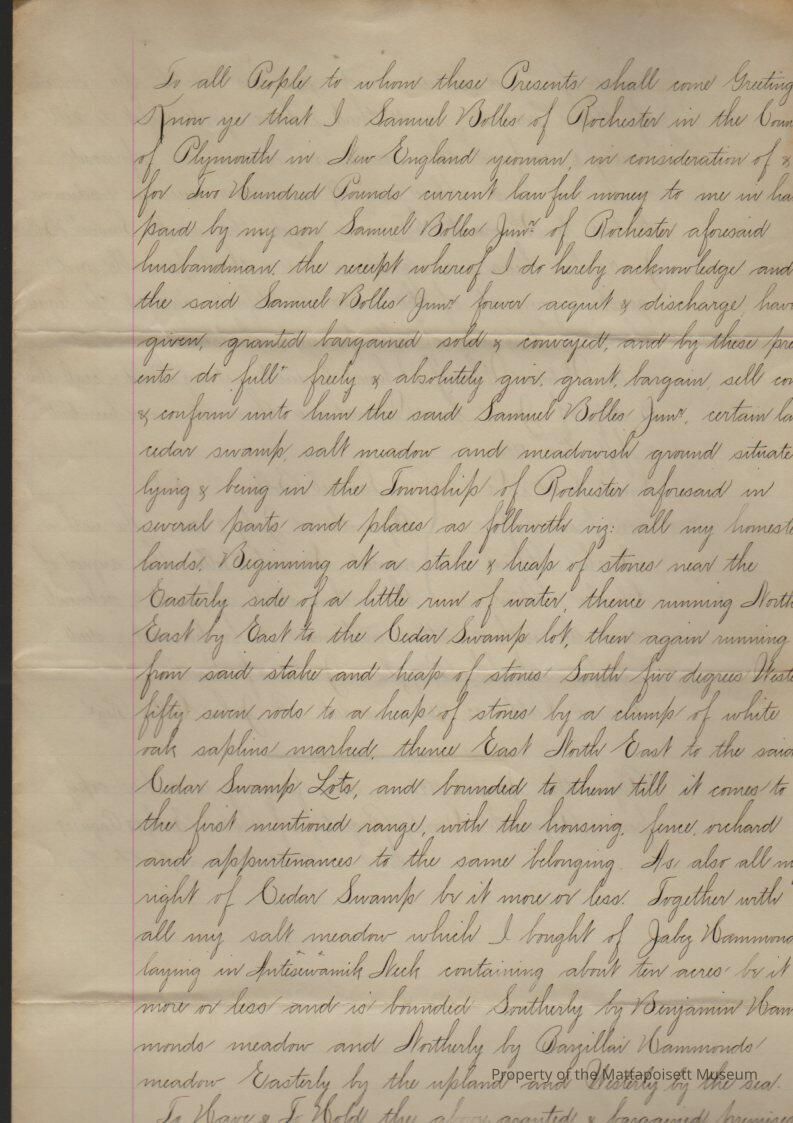 To all People to whom these Presents shall come Greeting
Know ye that I Samuel Bolles of Rochester in the Coun
of Plymouth in New England yeoman, in consideration of &
for Two Hundred Pounds current lawful money to me in ha
paid by my son Samuel Bolles Junr. of Rochester aforesaid
husbandman, the receipt whereof I do hereby acknowledge and
the said Samuel Bolles Junr. forever acquit & discharge, hav
given, granted bargained sold & conveyed, and by these pre
ents do full freely & absolutely give, grant, bargain, sell con
& confirm unto him the said Samuel Bolles Junr. certain la
cedar swamp, salt meadow and meadowish ground situate
lying & being in the Township of Rochester aforesaid in
several parts and places as followeth viz: all my homeste
lands. Beginning at a stake & heap of stones near the
Easterly side of a little run of water, thence running North
East by East to the Cedar Swamp lot, then again running
from said stake and heap of stones South five degrees West
fifty seven rods to a heap of stones by a clump of white
oak saplins marked, thence East North East to the said
Cedar Swamp Lots, and bounded to them till it comes to
the first mentioned range, with the housing, fence, orchard
and appurtenances to the same belonging. As also all m
right of Cedar Swamp be it more or less. Together with
all my salt meadow which I bought of Jabez Hammond
laying in Antisewamik Neck containing about ten acres be it
more or less and is bounded Southerly by Benjamin Ham
monds meadow and Northerly by Barzillai Hammonds
meadow Easterly by the upland and Westerly by the sea.
Property of the Mattapoisett Museum
To Have & To Hold the above granted & bargained premises